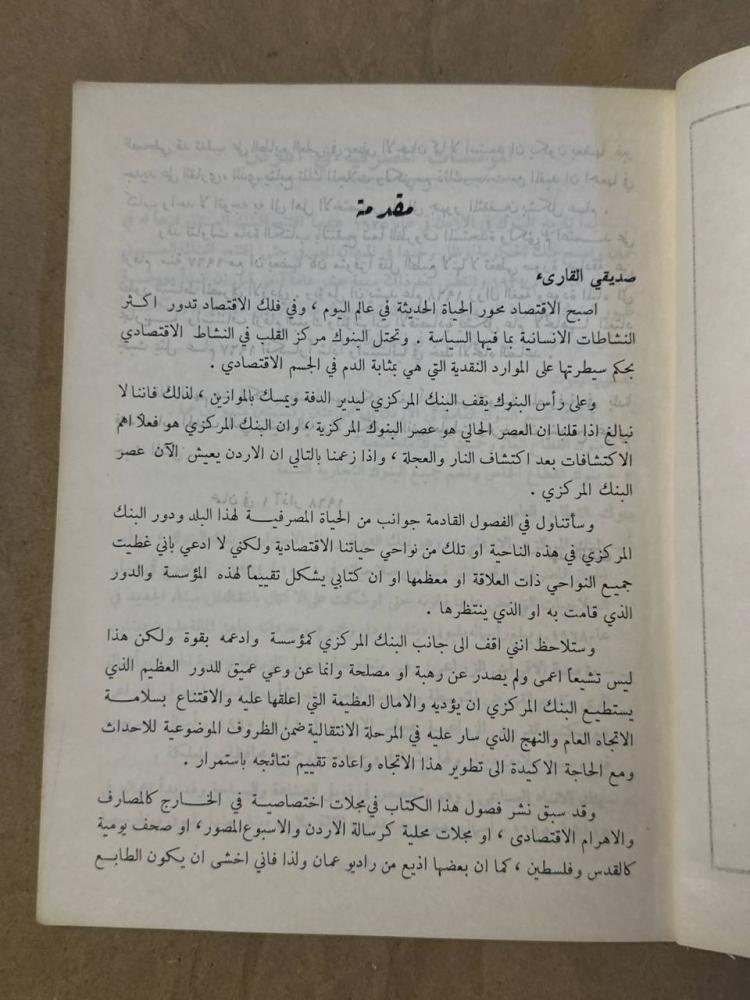 مقدمة
صديقي القارىء
اصبح الاقتصاد محور الحياة الحديثة في عالم اليوم ، وفي فلك الاقتصاد تدور اكثر
النشاطات الانسانية بما فيها السياسة . وتحتل البنوك مركز القلب في النشاط الاقتصادي
بحكم سيطرتها على الموارد النقدية التي هي بمثابة الدم في الجسم الاقتصادي .
وعلى رأس البنوك يقف البنك المركزي ليدير الدفة ويمسك بالموازين ، لذلك فاننا لا
نبالغ اذا قلنا ان العصر الحالي هو عصر البنوك المركزية ، وان البنك المركزي هو فعلا اهم
الاكتشافات بعد اكتشاف النار والعجلة ، واذا زعمنا بالتالي ان الاردن يعيش الآن عصر
البنك المركزي .
وسأتناول في الفصول القادمة جوانب من الحياة المصرفيـة لهذا البلد ودور البنك
المركزي في هذه الناحية او تلك من نواحي حياتنا الاقتصادية ولكني لا ادعي باني غطيت
جميع النواحي ذات العلاقة او معظمها او ان كتابي يشكل تقييماً لهذه المؤسسة والدور
الذي قامت به او الذي ينتظرها .
وستلاحظ انني اقف الى جانب البنك المركزي كمؤسسة وادعمه بقوة ولكن هذا
ليس تشيعاً اعمى ولم يصدر عن رهبة او مصلحة وانما عن وعي عميق للدور العظيم الذي
يستطيع البنك المركزي ان يؤديه والامال العظيمة التي اعلقها عليه والاقتناع بسلامـة
الاتجاه العام والنهج الذي سار عليه في المرحلة الانتقالية ضمن الظروف الموضوعية للاحداث
ومع الحاجة الاكيدة الى تطوير هذا الاتجاه واعادة تقييم نتائجه باستمرار .
وقد سبق نشر فصول هذا الكتاب في مجلات اختصاصيـة في الخـارج كالمصارف
والاهرام الاقتصادى ، او مجلات محلية كرسالة الاردن والاسبوع المصور، او صحف يومية
كالقدس وفلسطين ، كما ان بعضها اذيع من راديو عمان ولذا فاني اخشى ان يكون الطابع